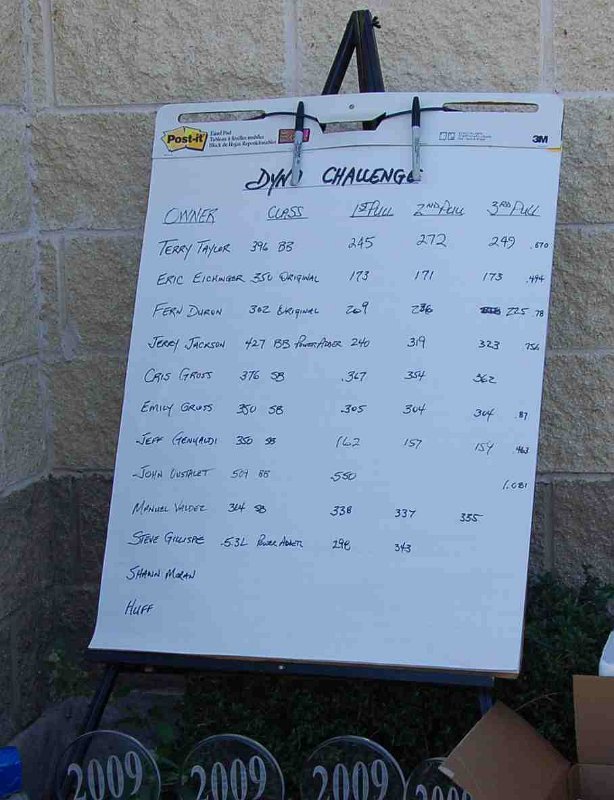 Post-it Easel Pad
Tableau à feuilles mobiles
Block de Hojas Reposicionables
3M
DYNO CHALLENGE
OWNER CLASS 1ST PULL 2ND PULL 3RD PULL
TERRY TAYLOR 396 BB 245 272 249 .670
ERIC EICHINGER 350 ORIGINAL 173 171 173 .494
FERN DURON 302 ORIGINAL 269 236 225 .78
JERRY JACKSON 427 BB POWER ADDER 240 319 323 .756
CRIS GROSS 376 SB .367 354 362
EMILY GROSS 350 SB .305 304 304 .87
JEFF 350 SB 162 157 159 .463
JOHN OUSTALET 509 BB .550 1.081
MANUEL VALDEZ 364 SB 338 337 335
STEVE GILLISPE .5.3L POWER ADDER 298 343
SHAWN MORAN
HUFF
2009 2009 2009 2009